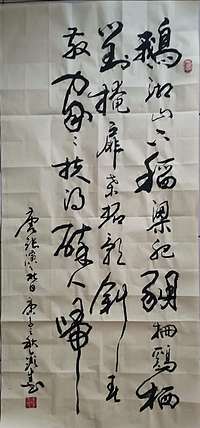 鵝湖山下稻粱肥豚柵鷄栖
對掩扉桑柘影斜春
散家々扶得醉人歸
唐張演社日庚子秋書